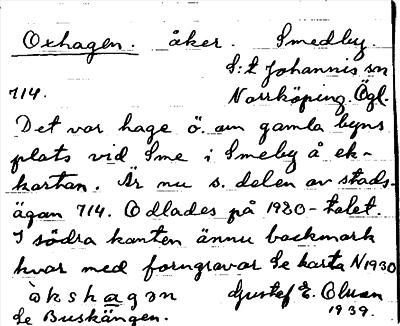 Oxhagen. åker. Smedby
S:t Johannis sn
714. Norrköping. Ögl.
Det var hage ö. om gamla byns
plats vid Sme i Smeby å ek-
kartan. Är nu s. delen av stads-
ägan 714. Odlades på 1920-talet.
I södra kanten ännu backmark
kvar med forngravar Se karta N1930
òkshagən Gustaf E. Olsson
Se Buskängen. 1939.